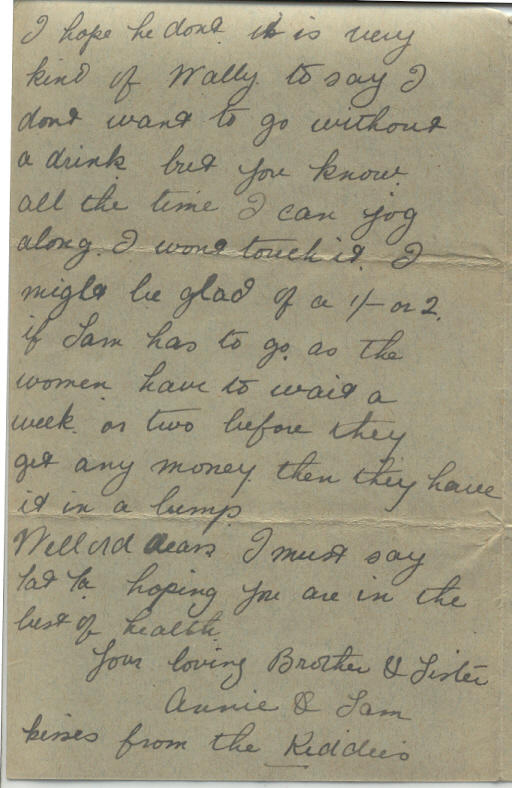 I hope he dont it is very
kind of Wally to say I
dont want to go without
a drink but you know
all the time I can jog
along. I wont touch it. I
might be glad of a 1/- or 2.
if Sam has to go. as the
women have to wait a
week. or two before they
get any money. then they have
it in a lump.
Well old dears I must say
Tat Ta. hoping you are in the
best of health.
Your loving Brother & Sister
Annie & Sam
kisses from the Kiddies